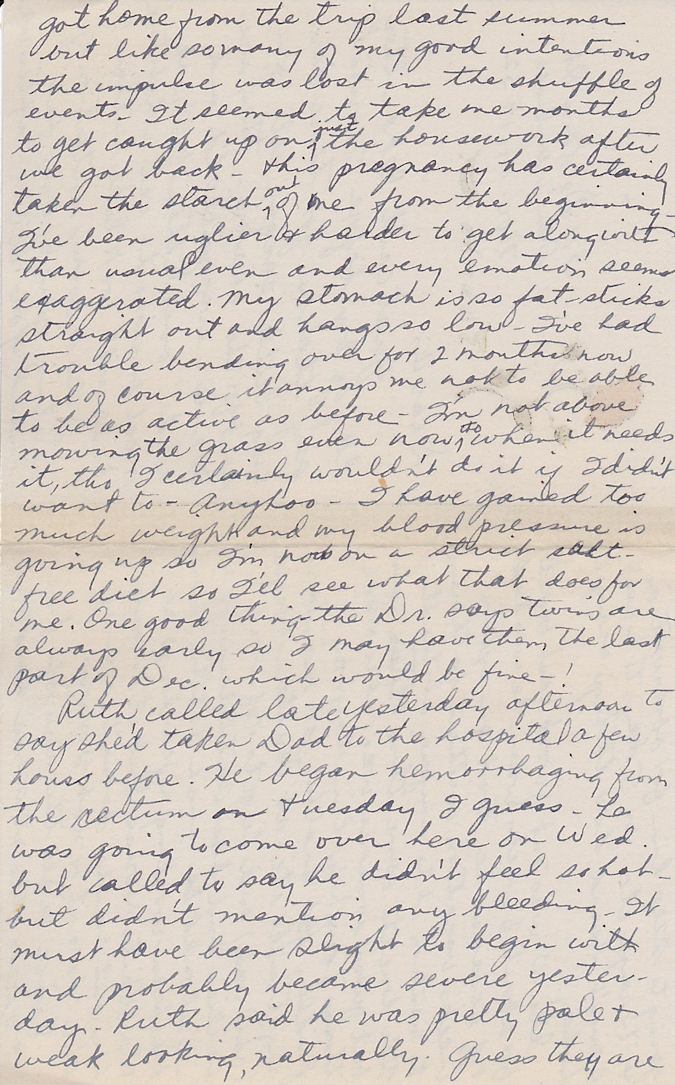 got home from the trip last summer
but like so many of my good intentions
the impulse was lost in the shuffle of
events. It seemed to take me months
to get caught up on just the housework after
we got back - this pregnancy has certainly
taken the starch out of me from the beginning -
I've been uglier & harder to get along with
than usual even and every emotion seems
exaggerated. My stomach is so fat - sticks
straight out and hangs so low - I've had
trouble bending over for 2 months now
and of course it annoys me not to be able
to be as active as before - I'm not above
mowing the grass even now tho when it needs
it, tho I certainly wouldn't do it if I didn't
want to - Anyhoo - I have gained too
much weight and my blood pressure is
going up so I'm now on a strict salt-
free diet so I'll see what that does for
me. One good thing - the Dr. says twins are
always early so I may have them the last
part of Dec. which would be fine - !
Ruth called late yesterday afternoon to
say she'd taken Dad to the hospital a few
hours before. He began hemorrhaging from
the rectum on Tuesday I guess - he
was going to come over here on Wed.
but called to say he didn't feel so hot -
but didn't mention any bleeding - It
must have been slight to begin with
and probably became severe yester-
day - Ruth said he was pretty pale &
weak looking, naturally. Guess they are